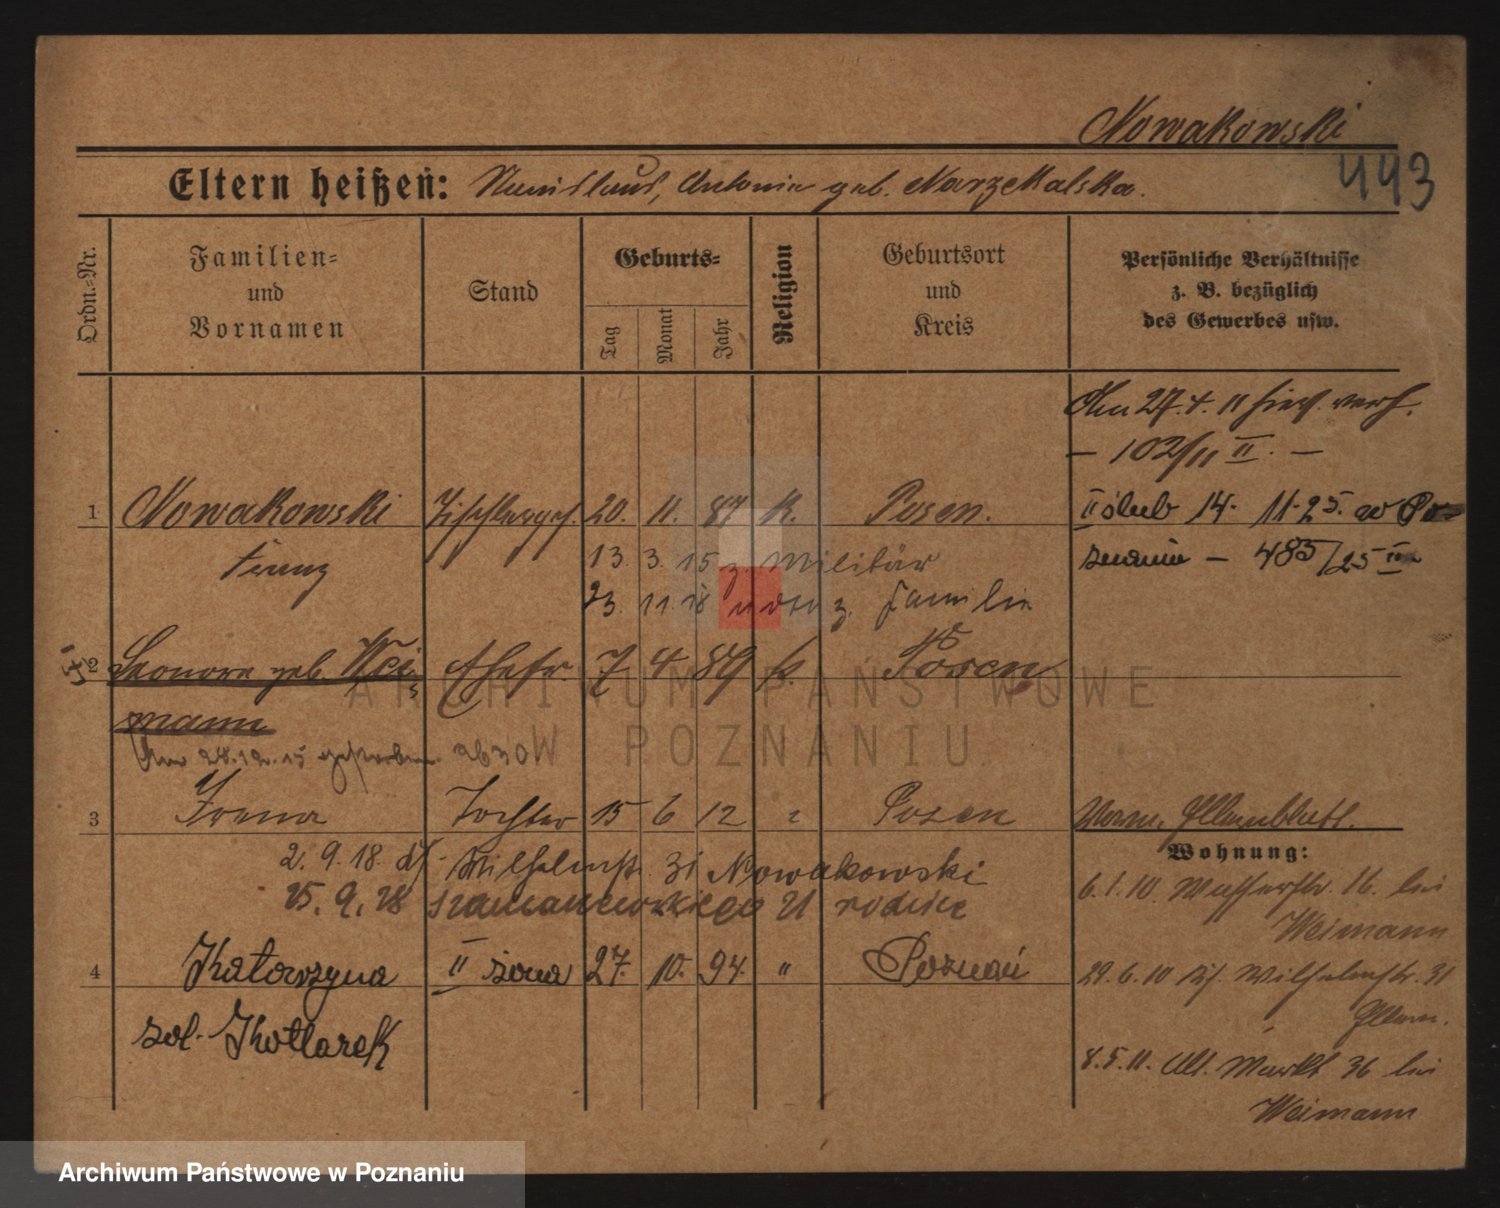 Nowakowski
443
Eltern heißen: Stanislaus, Antonie geb. Narzekalska.
Ordn.-Nr.
Familien- und Vornamen
Stand
Geburts-
Tag
Monat
Jahr
Religion
Geburtsort und Kreis
Persönliche Verhältnisse z. B. bezüglich des Gewerbes usw.
Am 27.4.11 hier verh.
— 102/11 II. —
1 Nowakowski Tischlerges. 20. 11. 87 k. Posen.
II ślub 14. 11. 25. w Po-
znaniu — 485/25
Franz
13. 3. 15 z. Militär
23. 11. 18 z. Familie
2 Leonora geb. Wei- Ehefr. 7 4 89 k. Posen
mann
Am 28.12.15 gestorben.
3 Irena Tochter 15 6 12 " Posen
Wohnung:
2. 9. 18. Wilhelmstr. 31 Nowakowski
25. 9. 28 Szamarzewskiego 21 rodzice
6.1.10. Wasserstr. 16. bei
Weimann
4 Katarzyna II żona 27. 10. 94. " Poznań
29.6.10 Wilhelmstr. 31
Eltern.
zol. Kotlarek
8.5.11. Alt. Markt 36 bei
Weimann
ARCHIWUM PAŃSTWOWE
W POZNANIU
Archiwum Państwowe w Poznaniu